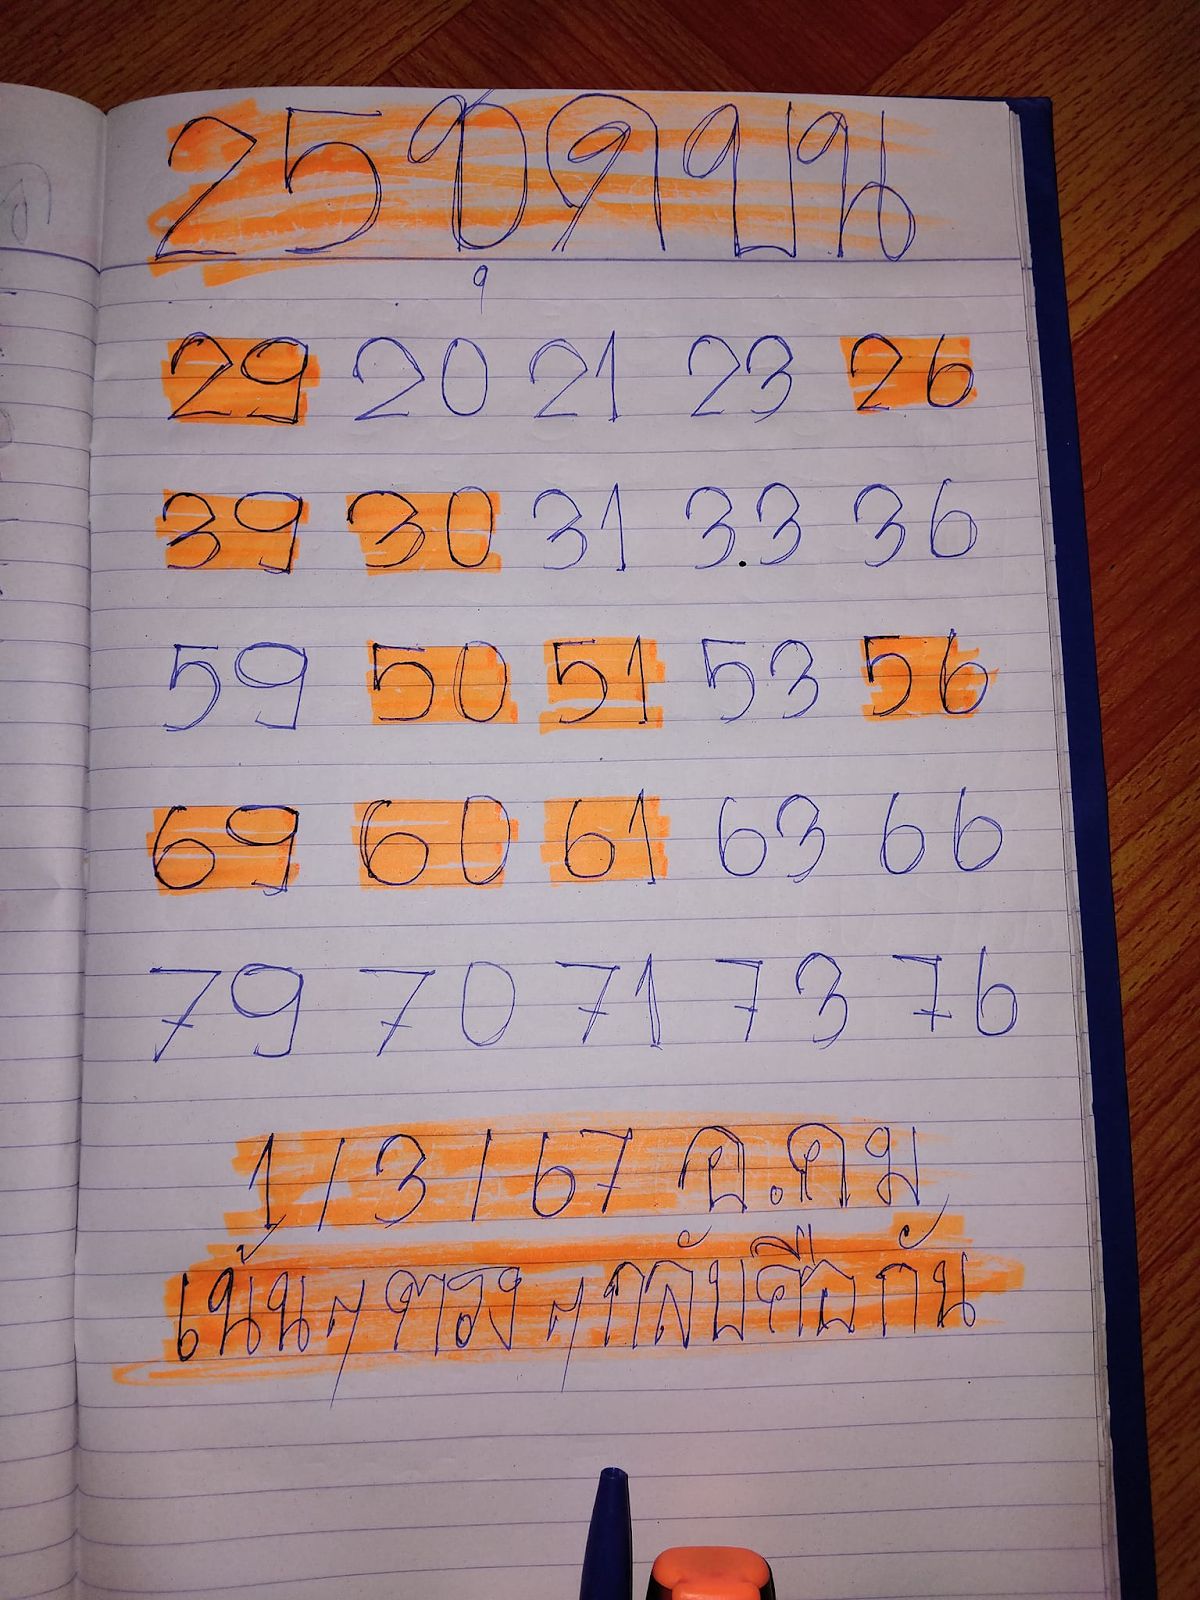 25 ชุดบน
29 20 21 23 26
39 30 31 3.3 36
59 50 51 53 56
69 60 61 63 66
79 70 71 73 76
1/3/67 อ.คม
เน้นๆตรงๆกลับคือกัน